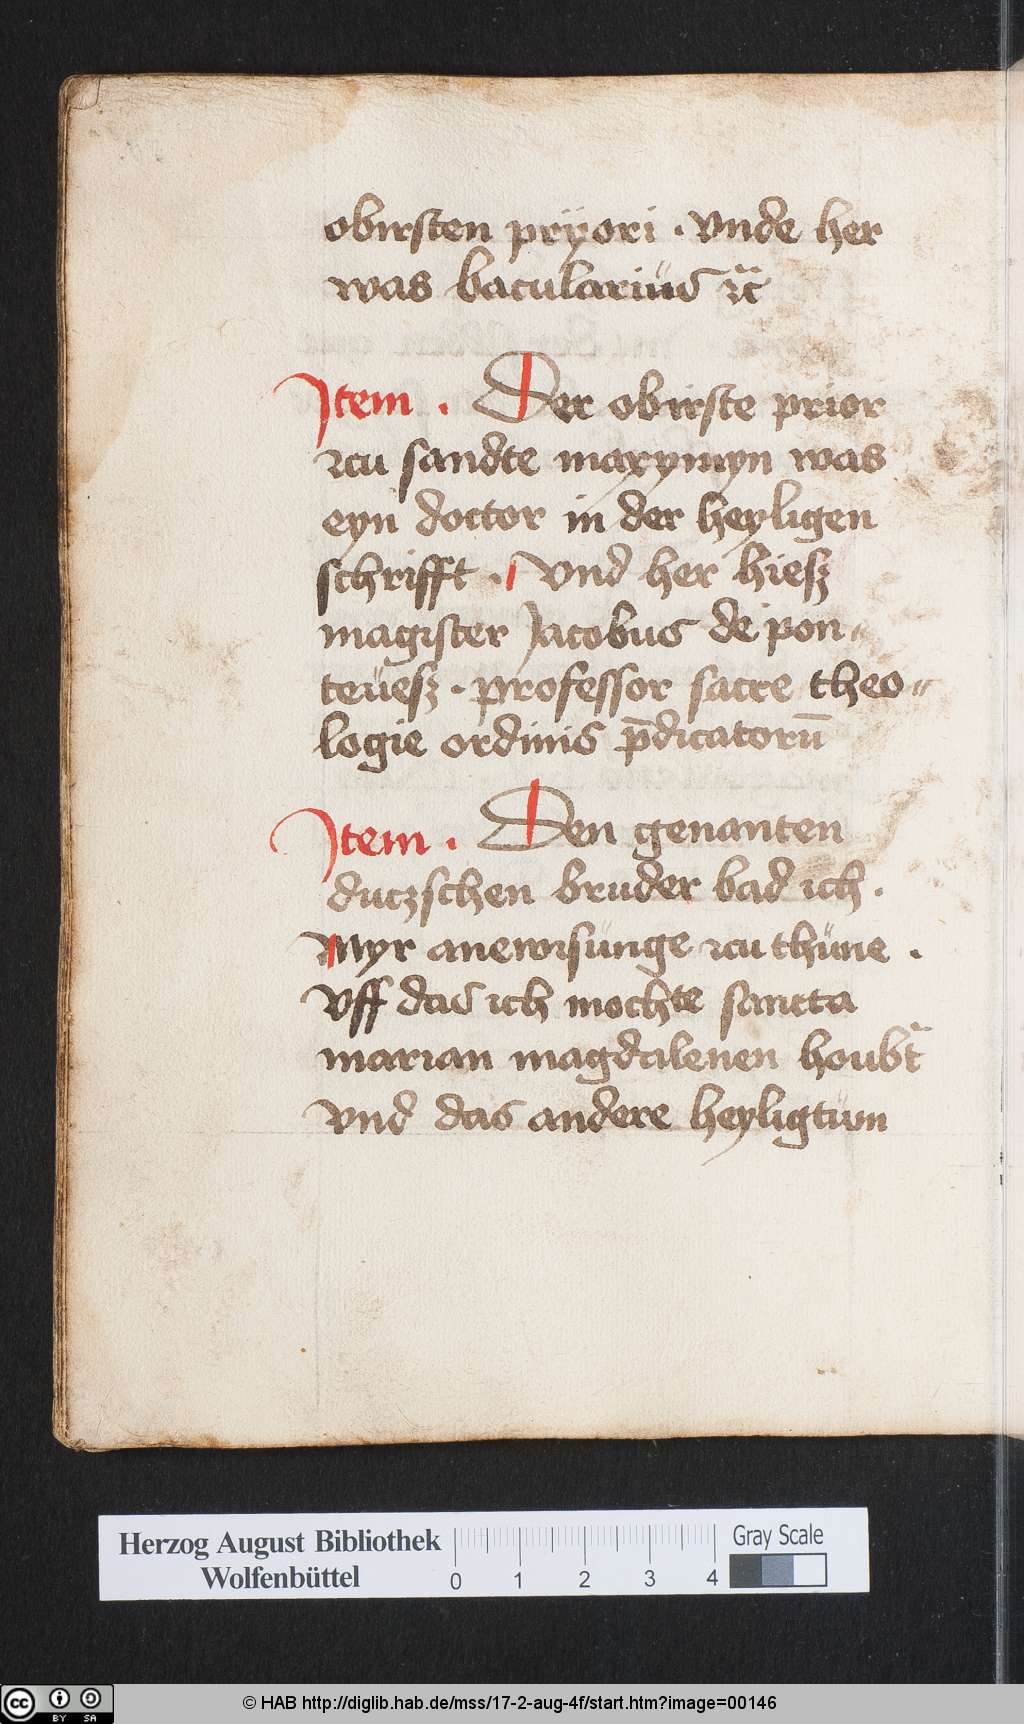 obirsten prÿori · vnde her
was baculariüs ꝛc̃
Item · Der obirste prior
zcu sandte maxymyn was
eyn doctor in der heyligen
schrifft · vnd her hiesz
magister Jacobus de pon⸗
teüesz · professor sacre theo⸗
logie ordinis p̄dicatorū
Item · Den genanten
dutzschen bruder bad ich ·
Myr anewisünge zcu thüne ·
vff das ich mochte sancta
marian magdalenen houbt̾
vnd das andere heyligtüm
Herzog August Bibliothek
Wolfenbüttel
0 1 2 3 4
Gray Scale
cc BY SA
© HAB http://diglib.hab.de/mss/17-2-aug-4f/start.htm?image=00146